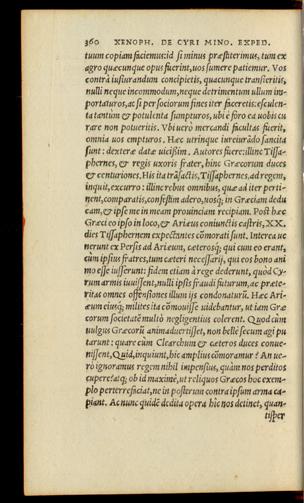 360 XENOPH. DE CYRI MINO. EXPED.
tuum copiam faciemus: id si minus præstiterimus, tum ex
agro quæcunque opus fuerint, uos sumere patiemur. Vos
contrà iusiurandum concipietis, quacunque transieritis,
nulli neque incommodum, neque detrimentum ullum im-
portaturos, ac si per sociorum fines iter faceretis: esculen-
ta tantùm & potulenta sumpturos, ubi è foro ea uobis cu
rare non potueritis. Vbi uerò mercandi facultas fuerit,
omnia uos empturos. Hæc utrinque iureiurādo sancita
sunt: dexteræ datæ uicissim. Autores fuere: illinc Tissa-
phernes, & regis uxoris frater, hinc Græcorum duces
& centuriones. His ita trāsactis, Tissaphernes, ad regem,
inquit, excurro: illinc rebus omnibus, quæ ad iter perti-
nent, comparatis, confestim adero, uosq; in Græciam dedu
cam, & ipse me in meam prouinciam recipiam. Post hæc
Græci eo ipso in loco, & Ariæus coniunctis castris, XX.
dies Tissaphernem expectantes cōmorati sunt. Interea ue
nerunt ex Persis ad Ariæum, cæterosq; qui cum eo erant,
cùm ipsius fratres, tum cæteri necessarij, qui eos bono ani
mo esse iusserunt: fidem etiam à rege dederunt, quòd Cy-
rum armis iuuissent, nulli ipsis fraudi futurum, ac præte-
ritas omnes offensiones illum ijs condonaturū. Hæc Ari-
æum eiusq; milites ita cōmouisse uidebantur, ut iam Græ
corum societatē multò negligentius colerent. Quod cùm
uulgus Græcorū animaduertisset, non bellè secum agi pu
tarunt: quare cùm Clearchum & cæteros duces conue-
nissent, Quid, inquiunt, hic amplius cōmoramur? An ue-
rò ignoramus regem nihil impensius, quàm nos perditos
cupere? atq; ob id maximè, ut reliquos Græcos hoc exem-
plo perterrefaciat, ne in posterum contra ipsum arma ca-
piant. Ac nunc quidē dedita opera hic nos detinet, quan-
tisper